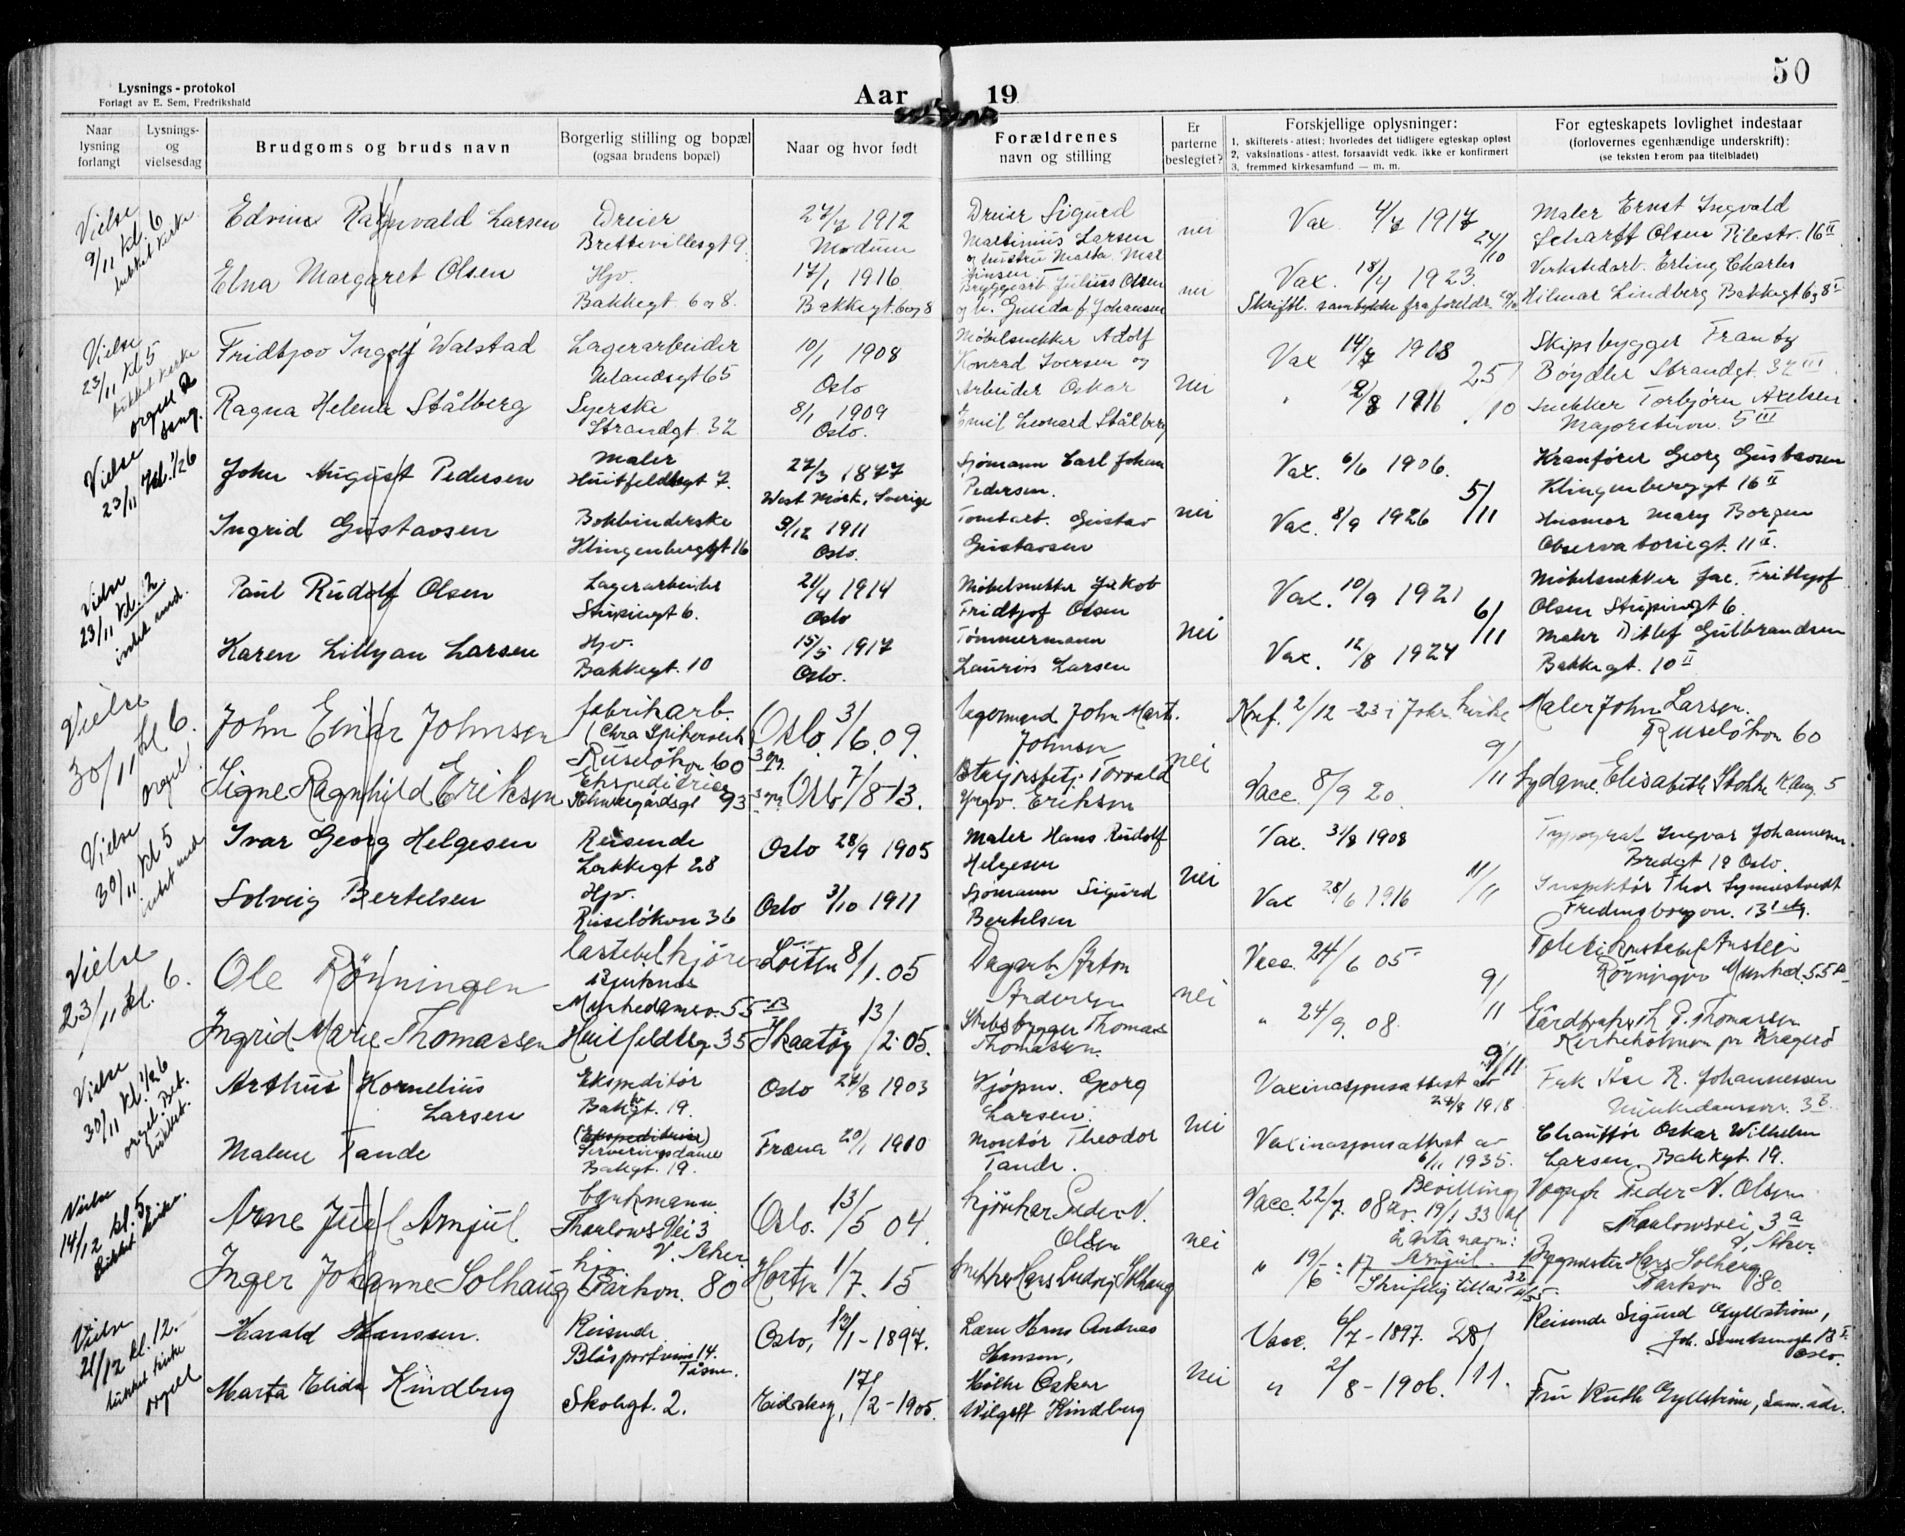 50
Lysnings-protokol
Forlagt av E. Sem, Fredrikshald
Aar 19
Naar lysning forlangt
Lysnings- og vielsesdag
Brudgoms og bruds navn
Borgerlig stilling og bopæl (ogsaa brudens bopæl)
Naar og hvor født
Forældrenes navn og stilling
Er parterne beslegtet?
Forskjellige oplysninger:
1. skifterets-attest: hvorledes det tidligere egteskap opløst
2. vaksinations-attest, forsaavidt vedk. ikke er konfirmert
3. fremmed kirkesamfund — m. m.
For egteskapets lovlighet indestaar
(forlovernes egenhændige underskrift):
(se teksten herom paa titelbladet)
Vielse 9/11 kl. 6
Edvin Ragnvald Larsen Dreier 27/7 1912 Dreier Sigurd nei Vax 4/7 1917 Maler Ernst Ingvald
Brettevillesgt 9. Modum Martinius Larsen 24/10 Scharff Olsen Pilestr. 16 II
Elna Margaret Olsen Hjv. 17/1 1916 Bryggearb. Julius Olsen nei Vax. 18/4 1923 Verkstedarb. Erling Charles
Bakkegt. 6 og 8. Bakkegt. 6 og 8 Johansen Skriftl. samtykke fra foreldr. Hilmar Lindberg Bakkegt 6 og 8
Vielse 23/11 kl 5
Fridtjov Ingolf Walstad Lagerarbeider 10/1 1908 Møbelsnekker Adolf Vax 14/7 1908 Skipsbygger Frantz
Uelandsgt 65 Oslo Konrad Iversen og 25/10 Bøydler Strandgt. 32 III
Ragna Helene Stålberg Syerske 8/1 1909 Arbeider Oskar nei 2/8 1916 Snekker Torbjørn Axelsen
orgel & sang. Strandgt. 32 Oslo. Emil Leonard Stålberg Majorstuvn. 5 III
Vielse 23/11 kl. 1/2 6
John August Pedersen Maler 27/3 1877 Sjømann Carl Johan Vax. 6/6 1906. Kranfører Georg Gustavsen
Huitfeldtsgt 7. West Mark, Sverige Pedersen. 5/11 Klingenberggt 16 II
Ingrid Gustavsen Bokbinderske 9/12 1911 Tomtarb. Gustav nei Vax. 8/9 1926 Husmor Mary Borgen
Klingenberggt 16 Oslo. Gustavsen Observatoriegt. 11 II.
Vielse 23/11 kl. 2
Paul Rudolf Olsen Lagerarbeider 21/4 1914 Møbelsnekker Jakob Vax. 10/9 1921 Møbelsnekker Jac. Fridtjof
Stupingt 6. Oslo Fridtjof Olsen 6/11 Olsen Stupingt 6.
Karen Lillyan Larsen Hjv. 15/5 1917 Tømmermann nei Vax. 12/8 1924 Maler Ditlef Gulbrandsen
Bakkegt. 10 Oslo. Laurits Larsen Bakkegt. 10 II
Vielse 30/11 kl 6. orgel
John Einar Johnsen fabrikarb. Oslo. 3/6. 09. John Mart. Konf. 2/12 -23 i Joh. kirke Maler John Larsen.
(Chra Spikerverk Johnsen Ruseløkvn 60
Ruseløkvn 60 nei 9/11
Signe Ragnhild Eriksen Ekspeditrice Oslo 7/8 -13. Torvald Vacc. 8/9 20. Sydame Elisabeth Stokke 5
93 Yngv. Eriksen
Vielse 30/11 kl 5
Ivar Georg Helgesen Reisende Oslo 28/9 1905 Maler Hans Rudolf Vax. 31/8 1908 Typograf Ingvar Johannesen
Lakkegt 28 Helgesen nei 11/11 Bredgt 19 Oslo.
Solveig Bertelsen Hjv. Oslo 3/10 1911 Sjømann Sigurd Vax 28/6 1916 Inspektør Thor Symnestvedt
Ruseløkvn 36 Bertelsen Fredensborgvn. 13
Vielse 23/11 kl. 6.
Ole Rönningen Lastebilkjører Löiten 8/1. 05 Dagarb. Anton Vacc. 24/6 05 Politikonstabel Anstein
Munkedamsv. 55 B Andersen nei 9/11 Rönningen Munked. 55 B
Ingrid Marie Thomassen Huitfeldtsg. 35 Skaatöy 13/2. 05. Skibsbygger Thomas Thomassen. " 24/9. 08. Th. P. Thomassen
Kirkeholmen pr Kragerö
Vielse 30/11 kl. 1/2 6
Arthur Kornelius Larsen Ekspeditør Oslo 27/8 1903 Kjøpm. Georg Larsen. Vaxinasjonsattest av 27/8 1918. 9/11 Frk Åse R. Johannessen
Bakkgt. 19. nei Munkedamsvn. 3 B.
Malene Tande (Ekspeditrise) Serveringsdame Fræna 20/1 1910 Montør Theodor Tande. Vaxinasjonsattest av 6/11 1935. Chauffør Oskar Wilhelm
Bakgt. 19. Larsen. Bakkgt. 19.
Vielse 14/12 kl. 5.
Arne Juel Arnjul Oslo. 13/5 04. Peder N. Olsen Vacc. 22/7. 08 Bevilling av 19/1 33 til Vognf. Peder N. Olsen
Thaulows Vei 3 V. Aker nei å anta navn: Arnjul. Thaulowsvei 3 a V. Aker.
Inger Johanne Solhaug hjv. Parkvn. 80 Horten 1/7. 15 Snekker Hans Ludvig Solhaug " 19/6 : 17 Skriftlig tillat. Bygmester Hans Solberg
Parkvn 80.
Vielse 21/12 kl. 12. lukket kirke orgel
Harald Hanssen. Reisende Oslo, 13/1 - 1897. Hans Andreas Vacc. 6/7 - 1897. 28/11. Reisende Sigurd Gyllström,
14. Tåsen. Hansen, Oslo.
Marta Elida Kindberg Skolegt. 2. Eidskog, 17/2 - 1905. Oskar nei " 2/8 - 1906. Fru Ruth Gyllström, sam. adr.
Kindberg